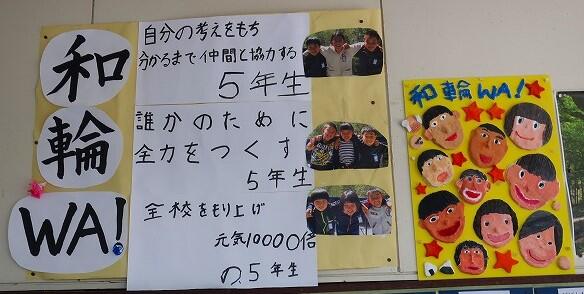 和
輪
WA!
自分の考えをもち
分かるまで仲間と協力する
5年生
誰かのために
全力をつくす
5年生
全校をもり上げ
元気10000倍
の5年生
和輪WA!